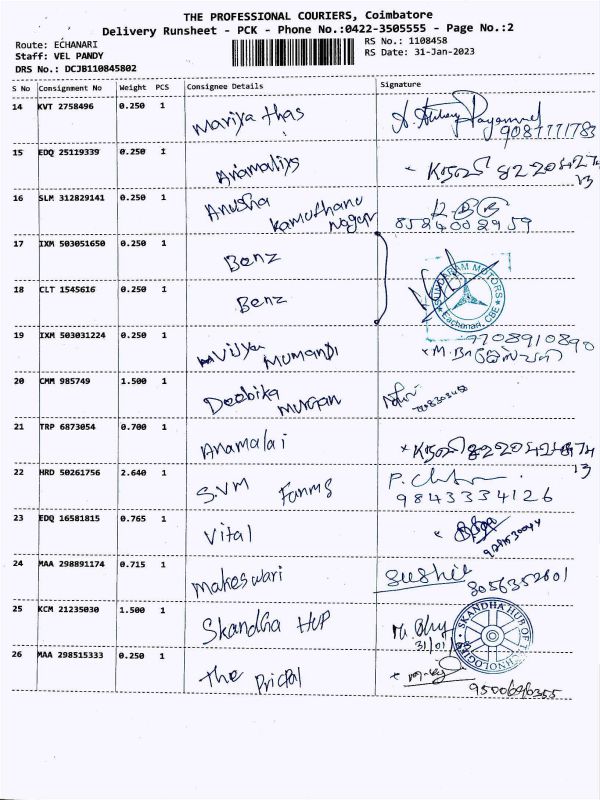 THE PROFESSIONAL COURIERS, Coimbatore
Delivery Runsheet - PCK - Phone No.:0422-3505555 - Page No.:2
Route: ECHANARI
Staff: VEL PANDY
DRS No.: DCJB110845802
RS No.: 1108458
RS Date: 31-Jan-2023
S No Consignment No Weight PCS Consignee Details Signature
14 KVT 2758496 0.250 1 Mariya thas 9087771783
15 EDQ 25119339 0.250 1 Anamaliys
16 SLM 312829141 0.250 1 Anusha Kamuthanu Nagar 8524002959
17 IXM 503051650 0.250 1 Benz
18 CLT 1545616 0.250 1 Benz SUNDARAM MOTORS Eachanari, CBE
19 IXM 503031224 0.250 1 Vijya Mumandi 9708910890
20 CMM 985749 1.500 1 Deebika Murgan
21 TRP 6873054 0.700 1 Anamalai
22 HRD 50261756 2.640 1 S.VM Fanms 9843334126
23 EDQ 16581815 0.765 1 Vital
24 MAA 298891174 0.715 1 Makeswari 8056352601
25 KCM 21235030 1.500 1 Skandha HUP 31/01/23 SKANDHA HUB OF TECHNOLOGIES
26 MAA 298515333 0.250 1 The Prictal 9500696355